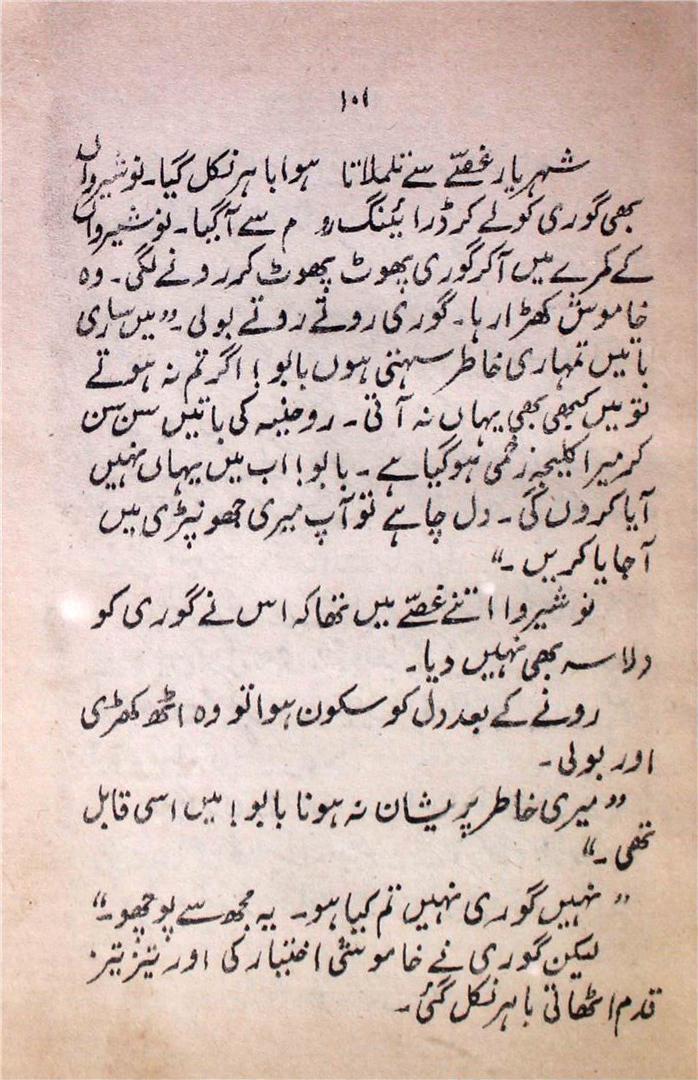 ۱۰۱
شہریار غصّے سے تلملاتا ہوا باہر نکل گیا۔ نوشیرواں
بھی گوری کو لے کر ڈرائینگ روم سے آگیا۔ نوشیرواں
کے کمرے میں آکر گوری پھوٹ پھوٹ کر رونے لگی۔ وہ
خاموش کھڑا رہا۔ گوری روتے روتے بولی۔ ”میں ساری
باتیں تمہاری خاطر سہتی ہوں بابو! اگر تم نہ ہوتے
تو میں کبھی بھی یہاں نہ آتی۔ روحینہ کی باتیں سن سن
کر میرا کلیجہ زخمی ہوگیا ہے۔ بابو! اب میں یہاں نہیں
آیا کروں گی۔ دل چاہے تو آپ میری جھونپڑی میں
آجایا کریں۔“
نوشیرواں اتنے غصّے میں تھا کہ اس نے گوری کو
دلاسہ بھی نہیں دیا۔
رونے کے بعد دل کو سکون ہوا تو وہ اٹھ کھڑی
اور بولی۔
”میری خاطر پریشان نہ ہونا بابو! میں اسی قابل
تھی۔“
”نہیں گوری نہیں تم کیا ہو۔ یہ مجھ سے پوچھو۔“
لیکن گوری نے خاموشی اختیار کی اور تیز تیز
قدم اٹھاتی باہر نکل گئی۔